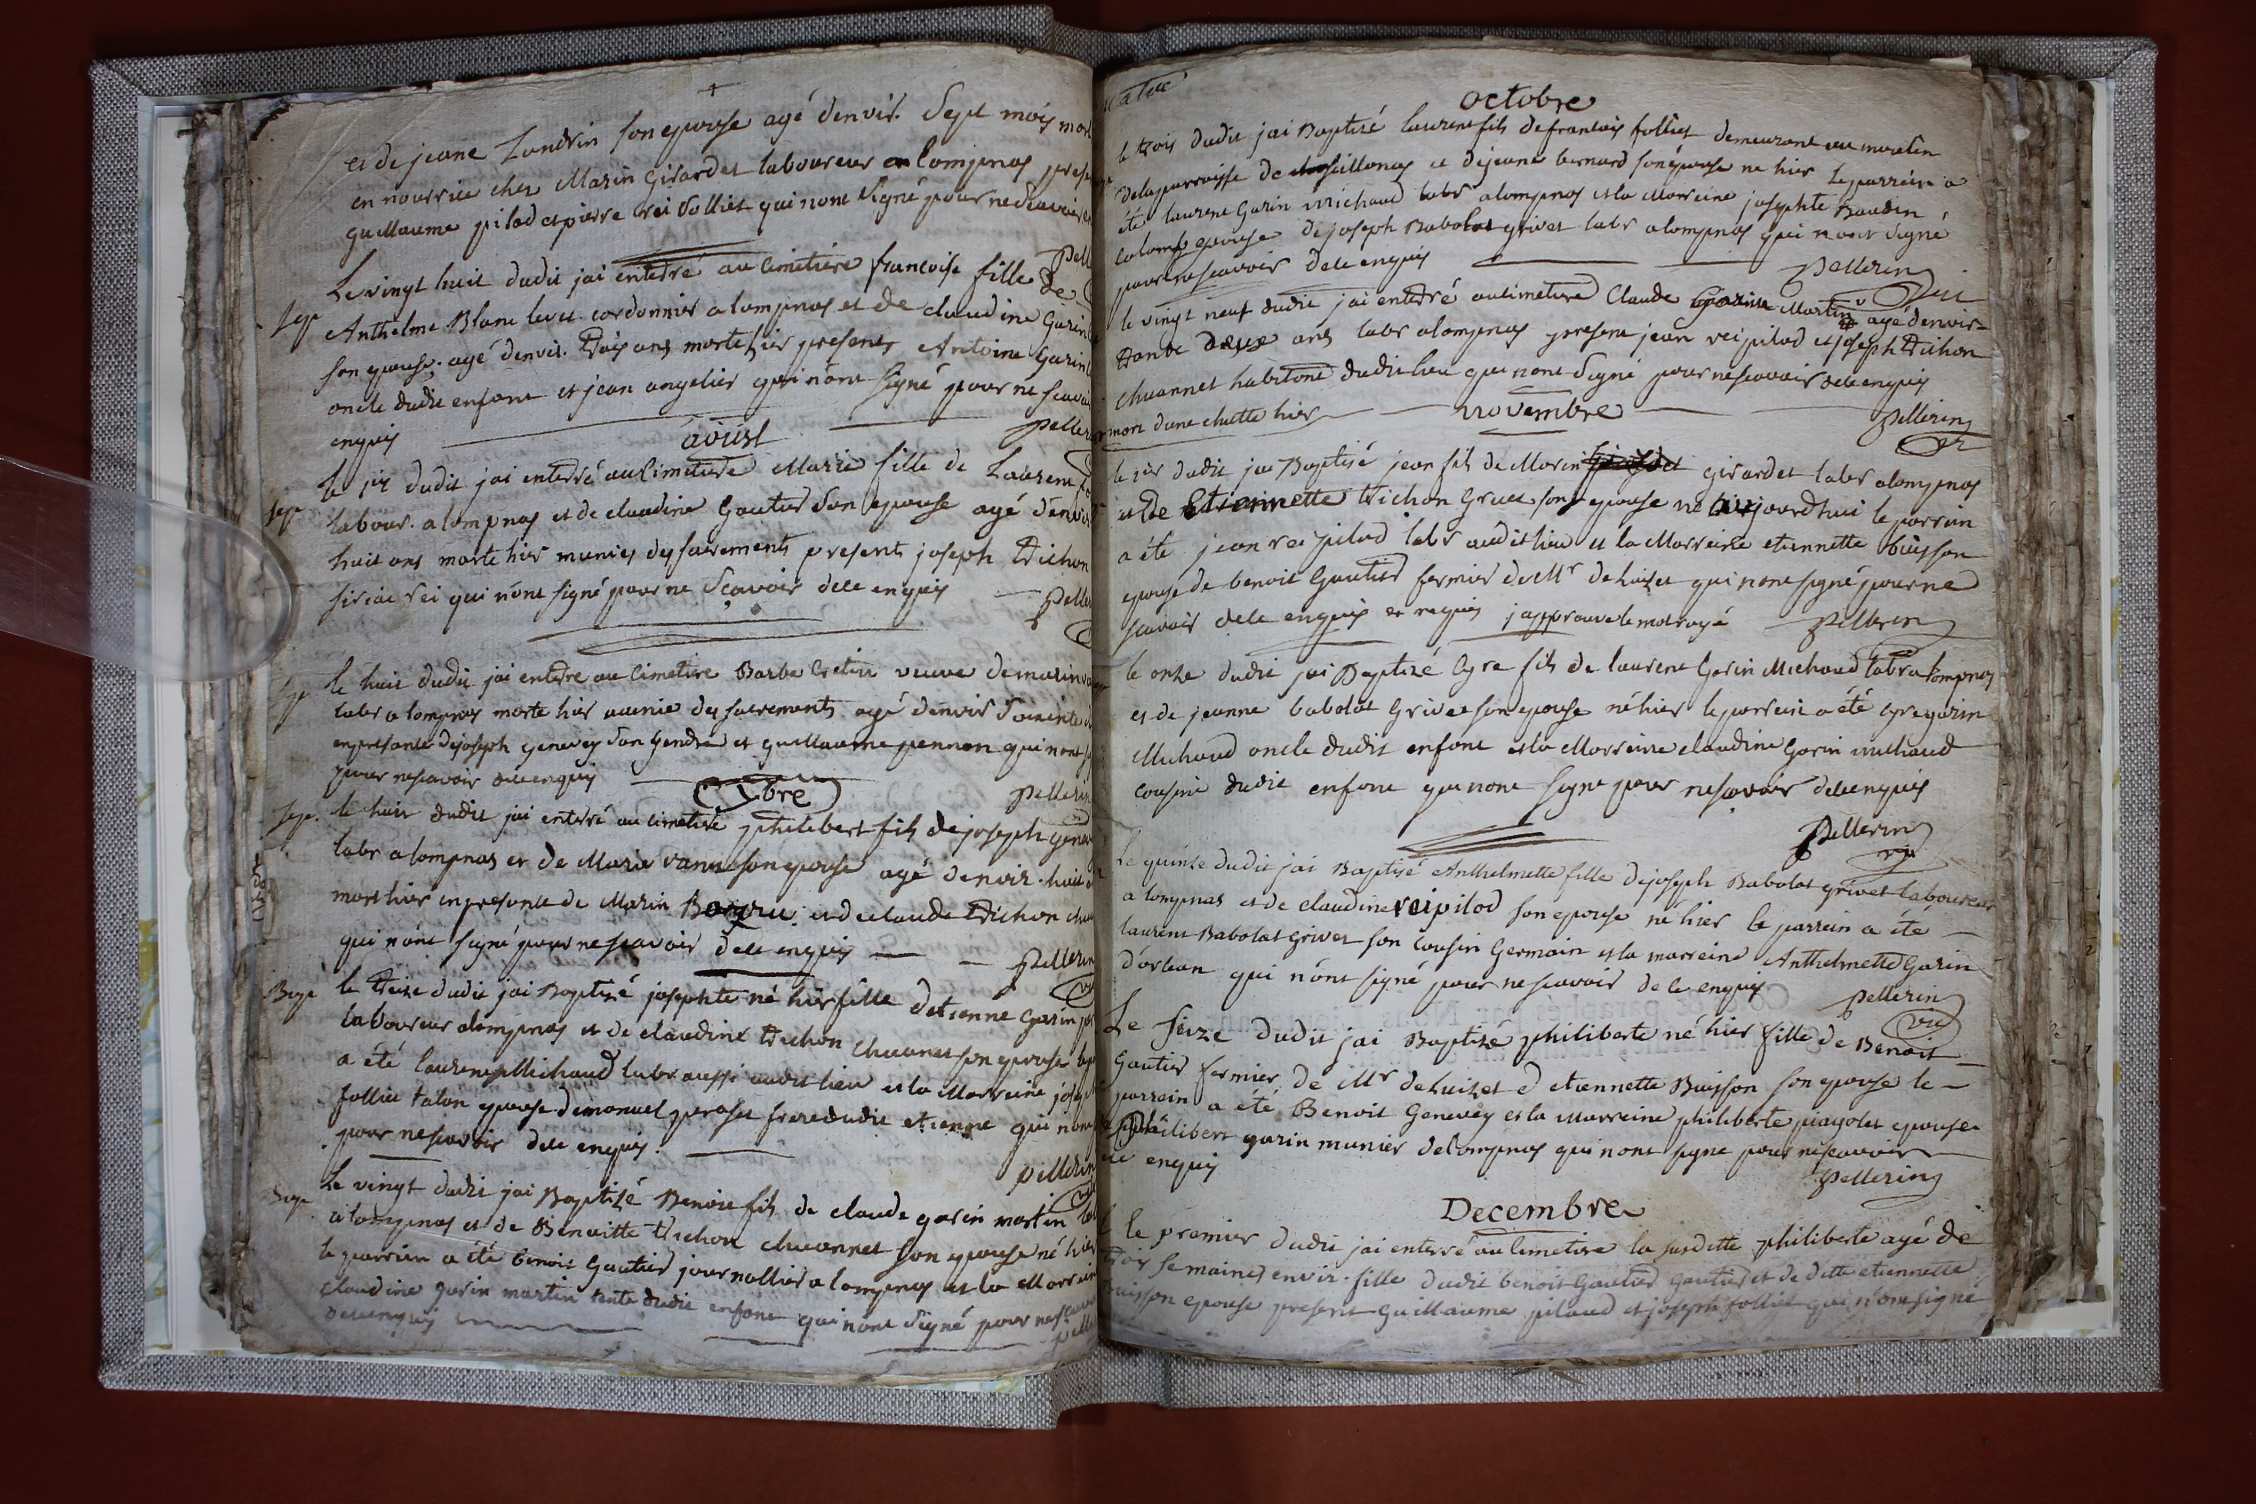 et de jeane Landrin son epouse agé d'envir. Sept mois mort
en nourrice chez Marin Girardet laboureur a lompnas
guillaume pilod et pierre rei folliet qui n'ont signé pour ne scavoir
Pell
Sep.
Le vingt huit dudit jai enterré au cimetiere francoise fille de
Anthelme Blanc cordonnier a lompnas et de claudine Garin
son epouse. agé d'envir. trois ans morte hier presents Antoine Garin
oncle dudit enfant et jean angelier qui n'ont signé pour ne scavoir
enquis
Peller
aoust
Sep.
le 1er dudit jai enterré au cimetiere Marie fille de Laurent
labour. a lompnas et de claudine Gautier son epouse agé d'envir
huit ans morte hier munies des sacrements presents joseph trichon
siriac rei qui n'ont signé pour ne scavoir de ce enquis
Peller
Sep.
le huit dudit jai enterre au cimetiere Barbe Cretin veuve de marin
labr a lompnas morte hier munie des sacrements agé d'envir soixante
en presance de joseph genevey son gendre et guillaume pennon qui n'ont
pour ne scavoir de ce enquis
Pellerin
7bre
Sep.
le huit dudit jai enterré au cimetiere philibert fils de joseph
labr a lompnas et de Marie vanne son epouse agé d'envir. huit
mort hier en presance de Marin et de claude trichon
qui n'ont signé pour ne scavoir de ce enquis
Pellerin
Bap.
le treize dudit jai Baptisé josephte né hier fille d'etienne Garin
laboureur a lompnas et de claudine trichon chuannet son epouse
a été laurent Michaud labr aussi audit lieu et la Marreine
folliet talon epouse d'emanuel perosset frere dudit etienne qui n'ont
pour ne scavoir de ce enquis.
pellerin
Bap.
Le vingt dudit jai Baptizé Benoit fils de claude garin martin
a lompnas et de Benoitte trichon chuannet son epouse né hier
le parrein a été benoit Gautier journallier a lompnas et la Marreine
claudine garin martin tente dudit enfant qui n'ont signé pour ne scavoir
de ce enquis
pelle
octobre
le trois dudit jai Baptizé laurent fils de francois folliet demeurant au moulin
de la parroisse de et de jeane bernard son epouse ne hier le parrein a
été laurent Garin michaud labr a lompnas et la Marreine josephte Baudin
colomb epouse de joseph Babolat grivet labr a lompnas qui n'ont signé
pour ne scavoir de ce enquis
Pellerin
le vingt neuf dudit jai enterré au cimetiere Claude Martin agé d'envir-
trante deux ans labr a lompnas present jean rei pilod et joseph trichon
chuannet habitant dudit lieu qui n'ont signé pour ne scavoir de ce enquis
mort d'une chutte hier
Pellerin
novembre
le 1er dudit jai Baptisé jean fils de Marin girardet labr a lompnas
et de Etiennette trichon son epouse ne aujourd'hui le parrein
a été jean rei pilod labr audit lieu et la Marreine etiennette buisson
epouse de benoit Gautier fermier de Mr de luiset qui n'ont signé pour ne
scavoir de ce enquis et requis japprouve le mot rayé
Pellerin
le onze dudit jai Baptizé Cyre fils de laurent Garin Michaud labr a lompnas
et de jeanne babolat Grivet son epouse né hier le parrein a été Cyre garin
Michaud oncle dudit enfant et la Marreine claudine Garin michaud
cousine dudit enfant qui n'ont signe pour ne scavoir de ce enquis
Pellerin
Le quinze dudit jai Baptizé Anthelmette fille de joseph Babolat grivet laboureur
a lompnas et de claudine rei pilod son epouse né hier le parrein a été
laurent Babolat Grivet son cousin Germain et la marreine Anthelmette Garin
d'orlean qui n'ont signé pour ne scavoir de ce enquis
pellerin
Le seize dudit jai Baptizé philiberte né hier fille de Benoit
Gautier fermier de Mr de luiset d'etiennette Buisson son epouse le
parrein a été Benoit Genevey et la Marreine philiberte payolet epouse
de philibert garin munier de lompnas qui n'ont signe pour ne scavoir
de ce enquis
Pellerin
Decembre
le premier dudit jai enterré au cimetire la susditte philiberte agé de
trois semaines envir. fille dudit benoit Gautier gautier et de ditte etiennette
buisson epouse present Guillaume pilaud et joseph folliet qui n'ont signe